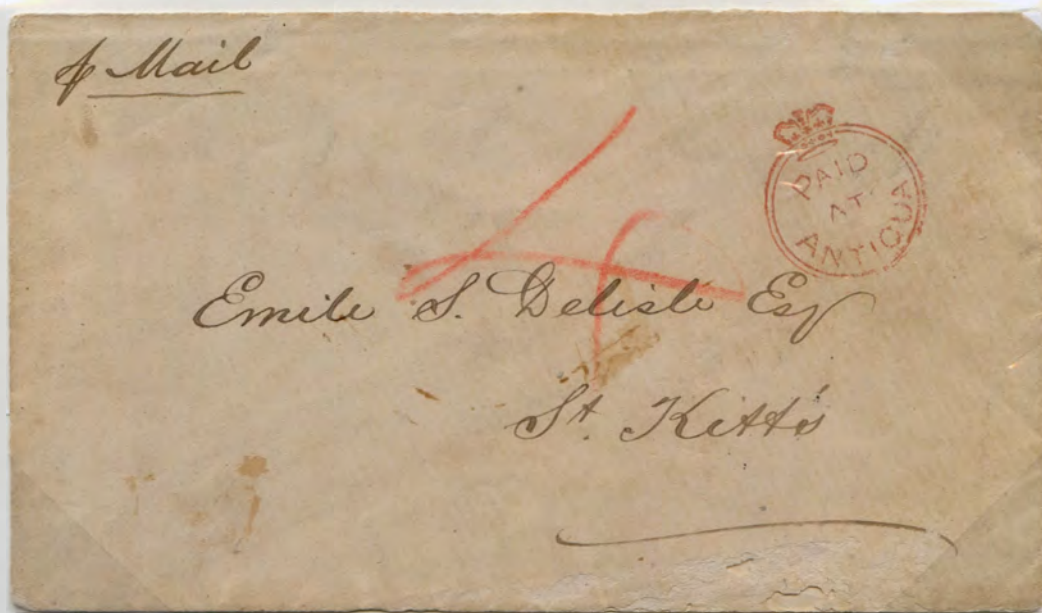 p Mail
4
PAID
AT
ANTIGUA
Emile S. Delisle Esq
St. Kitt's